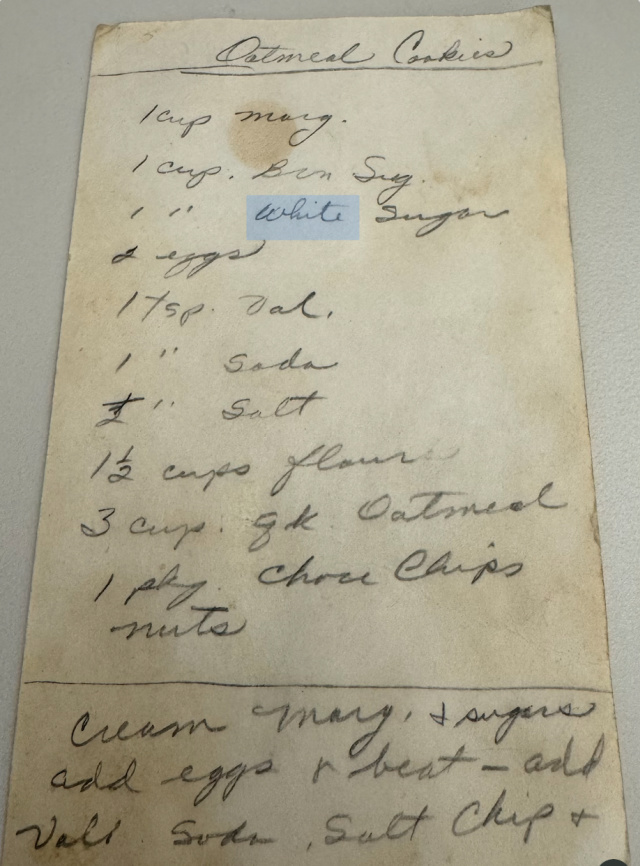 Oatmeal Cookies
1 cup marg.
1 cup. Brn Sug.
1 " White Sugar
2 eggs
1 Tsp. Val.
1 " Soda
½ " Salt
1½ cups flour
3 cup. qk Oatmeal
1 pkg. Choc Chips
nuts
Cream Marg. & sugars
add eggs & beat – add
Vall Soda, Salt Chip +